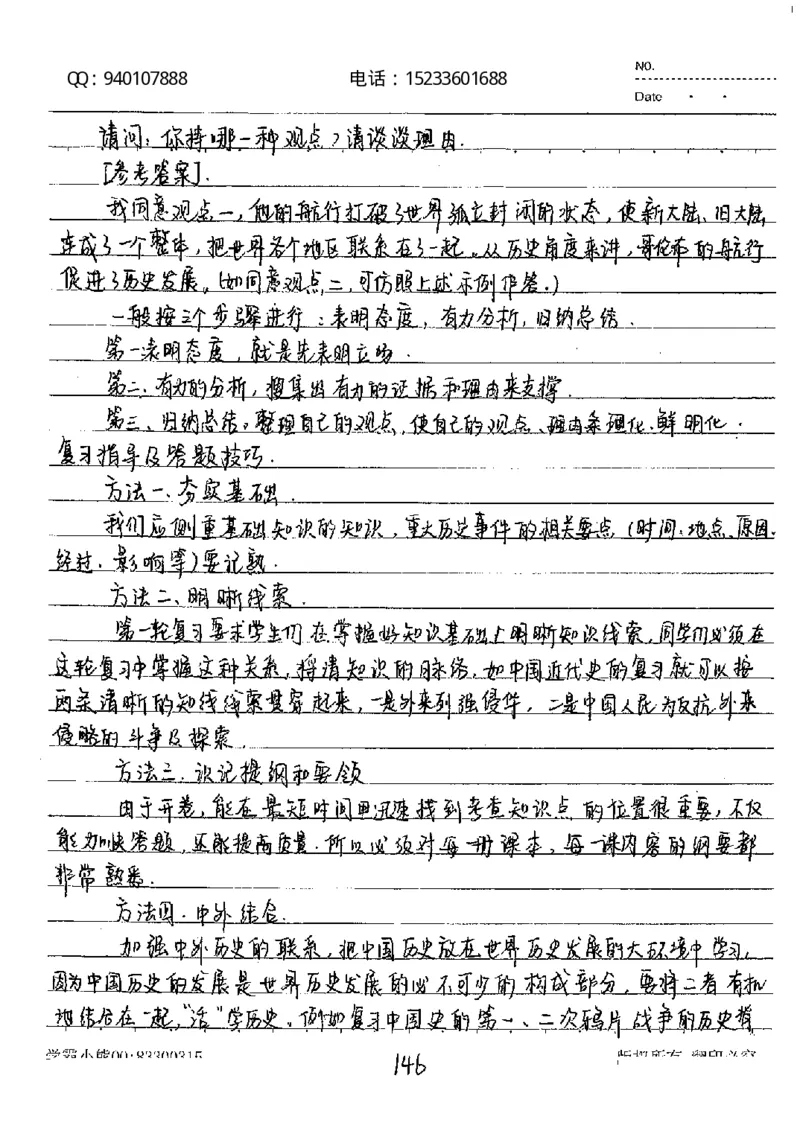 QQ：940107888 电话：15233601688 NO.
Date · ·
请问：你持哪一种观点？请谈谈理由．
[参考答案]．
我同意观点一，他的航行打破了世界孤立封闭的状态，使新大陆、旧大陆
连成了一个整体，把世界各个地区联系在了一起。从历史角度来讲，哥伦布的航行
促进了历史发展。（如同意观点二，可仿照上述示例作答。）
一般按三个步骤进行：表明态度，有力分析，归纳总结．
第一表明态度，就是先表明立场．
第二．有力的分析，搜集出有力的证据和理由来支撑．
第三、归纳总结。整理自己的观点，使自己的观点、理由条理化、鲜明化．
复习指导及答题技巧．
方法一、夯实基础．
我们应侧重基础知识的知识，重大历史事件的相关要点（时间、地点、原因、
经过、影响等）要记熟．
方法二、明晰线索．
第一轮复习要求学生们在掌握好知识基础上明晰知识线索，同学们必须在
这轮复习中掌握这种关系，捋清知识的脉络，如中国近代史的复习就可以按
两条清晰的知线线索贯穿起来，一是外来列强侵华，二是中国人民为反抗外来
侵略的斗争及探索．
方法三．识记提纲和要领
由于开卷，能在最短时间里迅速找到考查知识点的位置很重要，不仅
能力加快答题，还能提高质量．所以必须对每一册课本，每一课内容的纲要都
非常熟悉．
方法四．中外结合．
加强中外历史的联系，把中国历史放在世界历史发展的大环境中学习，
因为中国历史的发展是世界历史发展的必不可少的构成部分，要将二者有机
地结合在一起，“活”学历史。例如复习中国史的第一、二次鸦片战争的历史背
学霸小熊QQ：83300315 146 版权所有 翻印必究